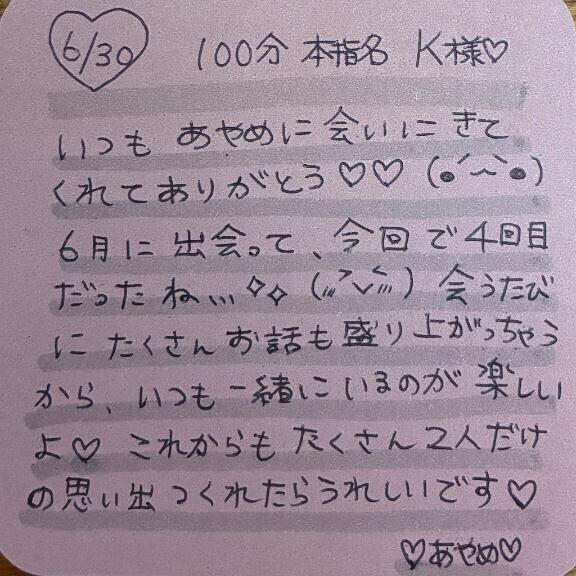 6/30 100分 本指名 K様♡
いつも あやめに 会いに きて
くれてありがとう♡♡ (●´⌒`●)
6月に 出会って、今回で 4回目
だったね... ✧✧ (,,,>ᴗ<,,,) 会うたび
に たくさん お話も 盛り上がっちゃう
から、いつも 一緒に いるのが 楽しい
よ♡ これからも たくさん 2人だけ
の 思い出 つくれたら うれしいです♡
♡あやめ♡